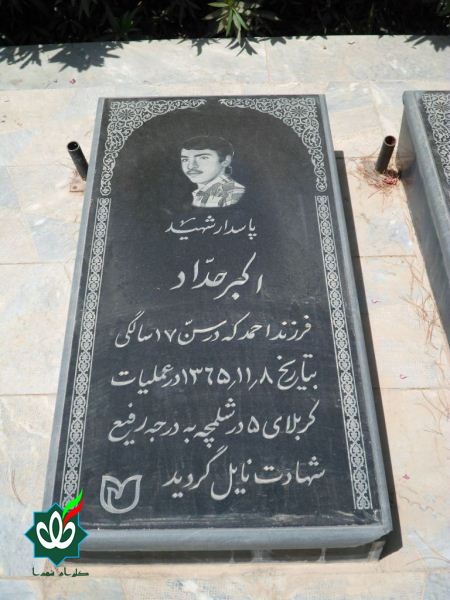 پاسدار شهید
اکبر حدّاد
فرزند احمد که در سنّ ۱۷ سالگی
بتاریخ ۸ ,۱۱ ,۱۳۶۵ در عملیات
کربلای ۵ در شلمچه به درجه رفیع
شهادت نایل گردید